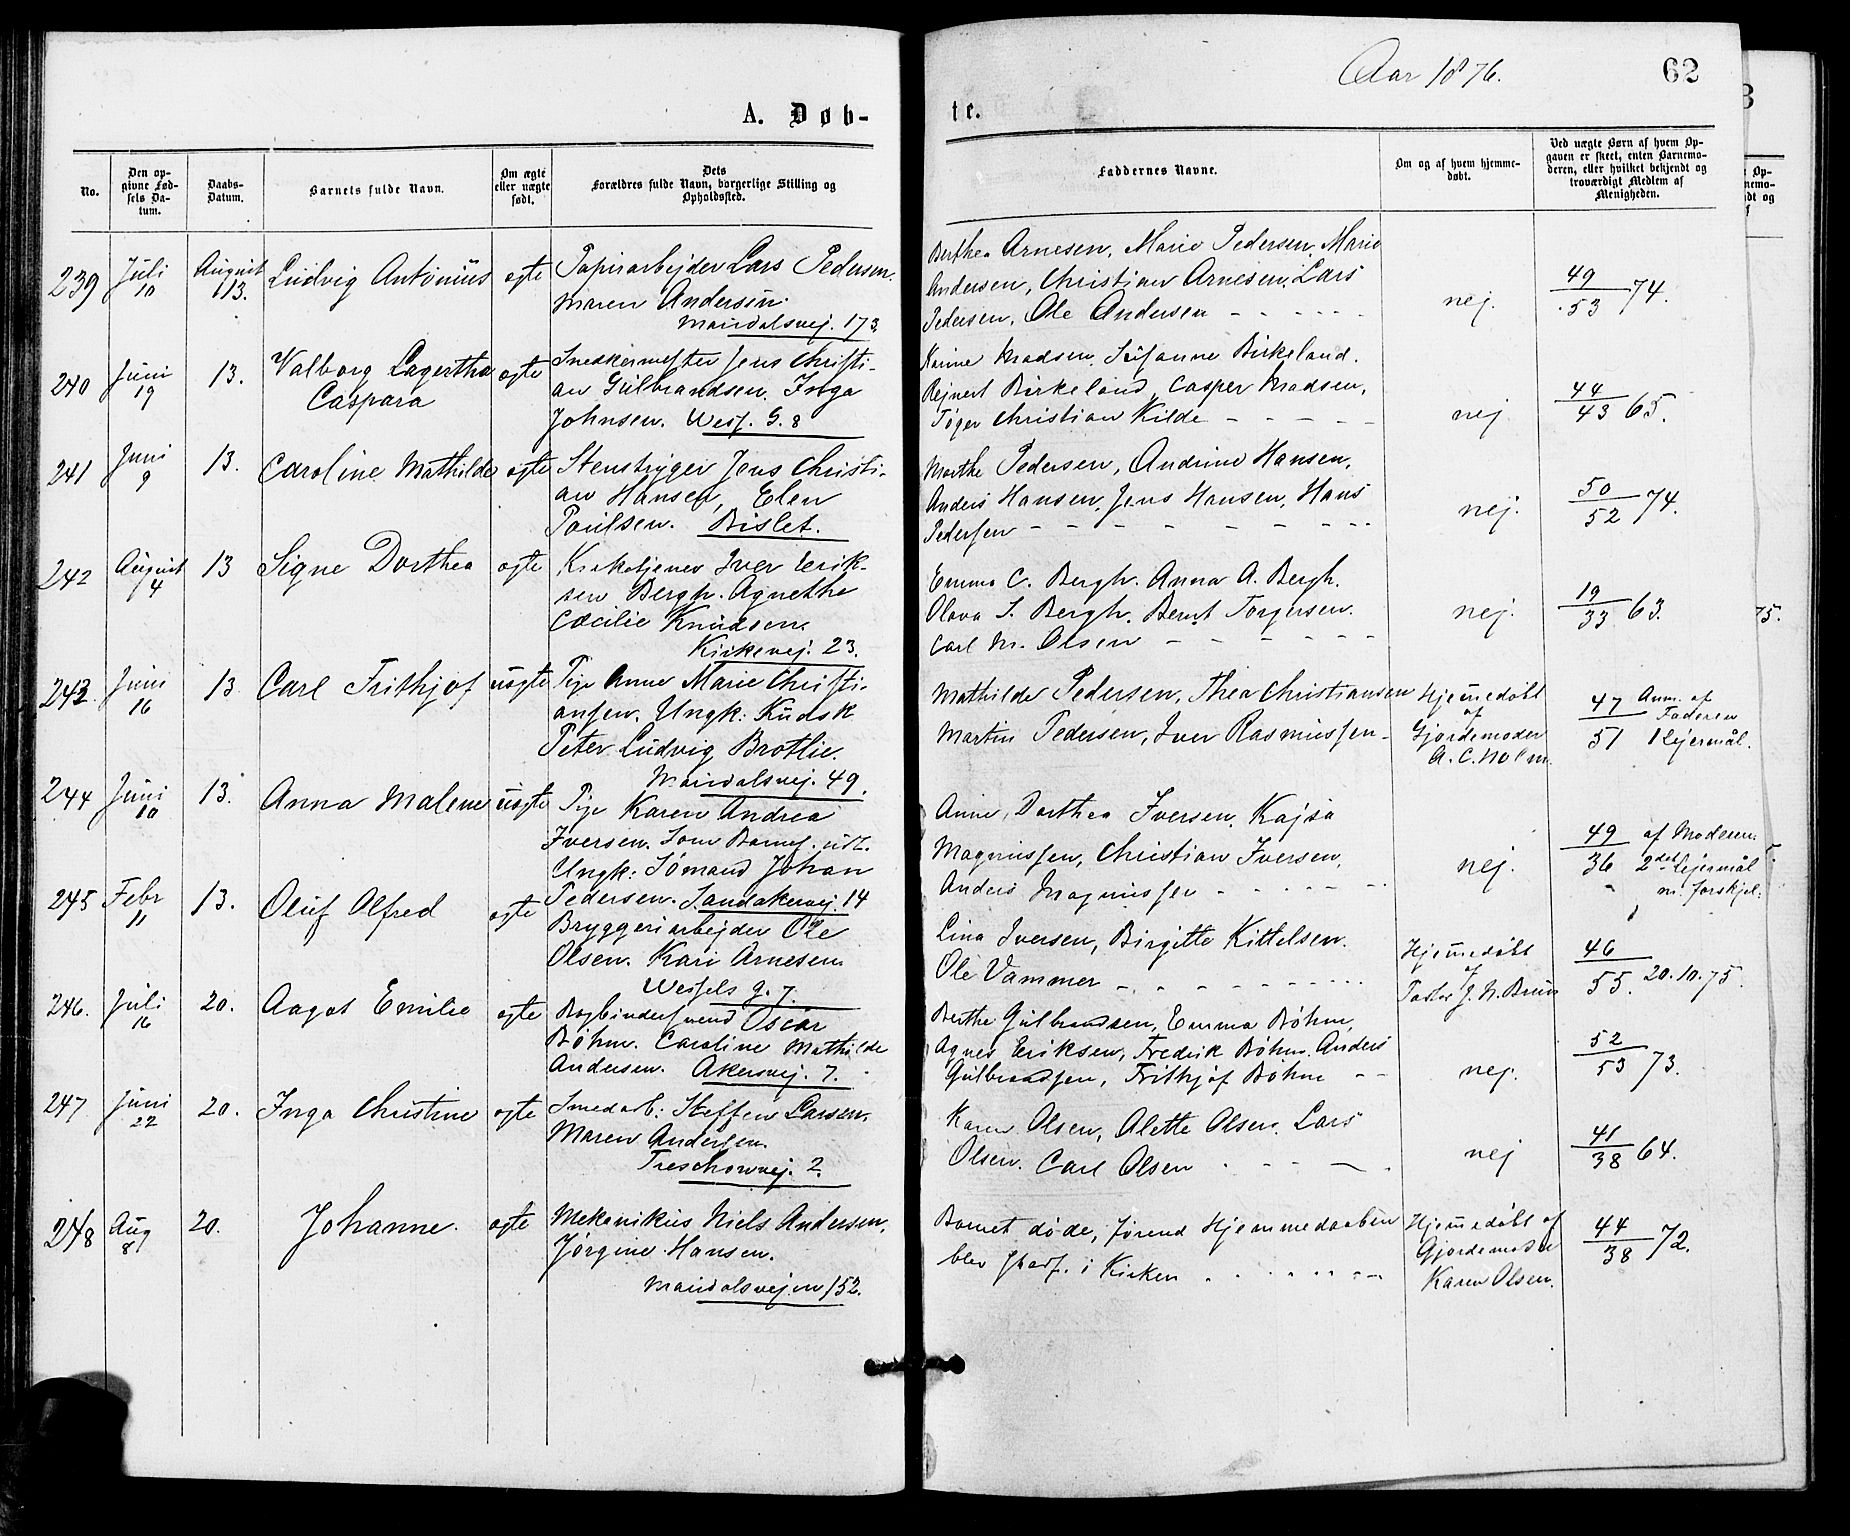 Aar 1876.
62
A. Døb-
te.
No.
Den op-
givne Fød-
sels Da-
tum.
Daabs-
Datum.
Barnets fulde Navn.
Om ægte
eller uægte
født.
Dets
Forældres fulde Navn, borgerlige Stilling og
Opholdssted.
Faddernes Navne.
Om og af hvem hjemme-
døbt.
Ved uægte Børn af hvem Op-
gaven er skeet, enten Barnemo-
deren, eller hvilket bekjendt og
troværdigt Medlem af
Menigheden.
239
Juli
10
August
13.
Ludvig Antonius
ægte
Papirarbejder Lars Pedersen.
Maren Andersen.
Maridalsvej. 173
Berthea Arnesen, Marie Pedersen, Marie
Andersen, Christian Arnesen, Lars
Pedersen, Ole Andersen - - - - - -
nej.
49
53 74.
240
Juni
19
13.
Valborg Lagertha
Caspara
ægte
Snedkermester Jens Christi-
an Gulbrandsen, Inga
Johnsen. Wess. G. 8
Karine Madsen, Susanne Birkeland.
Rejnert Birkeland, Casper Madsen,
Tøger Christian Kilde - - - - -
nej
44
43 65.
241
Juni
9
13.
Caroline Mathilde
ægte
Stenbryger Jens Christi-
an Hansen, Elen
Poulsen. Bislet.
Marthe Pedersen, Andrine Hansen,
Anders Hansen, Jens Hansen, Hans
Pedersen - - - - - - - - -
nej.
50
52 74.
242
August
4
13
Signe Dorthea
ægte
Kirketjener Iver Erik-
sen Bergh. Agnethe
Cæcilie Knudsen.
Kirkevej. 23.
Emma C. Bergh. Anna A. Bergh.
Olava S. Bergh. Bernt Torgersen.
Carl M. Olsen - - - - - -
nej.
19
33 63.
75.
243.
Juni
16
13
Carl Frithjof
uægte
Pige Anne Marie Christi-
ansen. Ungk: Kudsk
Peter Ludvig Brotlie.
Maridalsvej. 49.
Mathilde Pedersen, Thea Christiansen
Martin Pedersen, Iver Rasmussen -
Hjemedøbt
af
Gjordemoder
A. C. Holm.
47 Anm. af
Faderen
51 1 Lejermål.
244
Juni
10
13.
Anna Malene
uægte
Pige Karen Andrea
Iversen. Som Barnef. udl.
Ungk: Sømand Johan
Pedersen. Sandakervej. 14
Anne, Dorthea Iversen, Kajsa
Magnussen, Christian Iversen,
Anders Magnussen - - - - - -
nej.
49 af Moderen.
36 2det Lejermål
m. forskjel:
245
Febr
11
13.
Oluf Alfred
ægte
Bryggeriarbejder Ole
Olsen. Kari Arnesen.
Wessels g. 7.
Lina Iversen, Birgitte Kittelsen.
Ole Vammer - - - - - - - -
Hjemedøbt
af
Pastor J. N. Bruun
46
55. 20.10.75.
246.
Juli
16
20.
Aagot Emilie
ægte
Bogbindersvend Oscar
Bøhm. Caroline Mathilde
Andersen. Akersvej. 7.
Berthe Gulbrandsen, Emma Bøhm,
Agnes Eriksen, Fredrik Bøhm, Anders
Gulbrandsen, Frithjof Bøhm - -
nej.
52
53 73.
247
Juni
22
20.
Inga Christine
ægte
Smedarb: Steffen Larsen,
Maren Andersen.
Treschowvej. 2.
Karen Olsen, Alette Olsen. Lars
Olsen. Carl Olsen - - - - -
nej
41
38 64.
248
Aug
8
20.
Johanne.
ægte
Mekanikus Niels Andersen,
Jørgine Hansen.
Maridalsvejen 152.
Barnet døde, førend Hjemmedaaben
blev stadf. i Kirken - - - - - - -
Hjemedøbt af
Gjordemoder
Karen Olsen.
44
38 72.